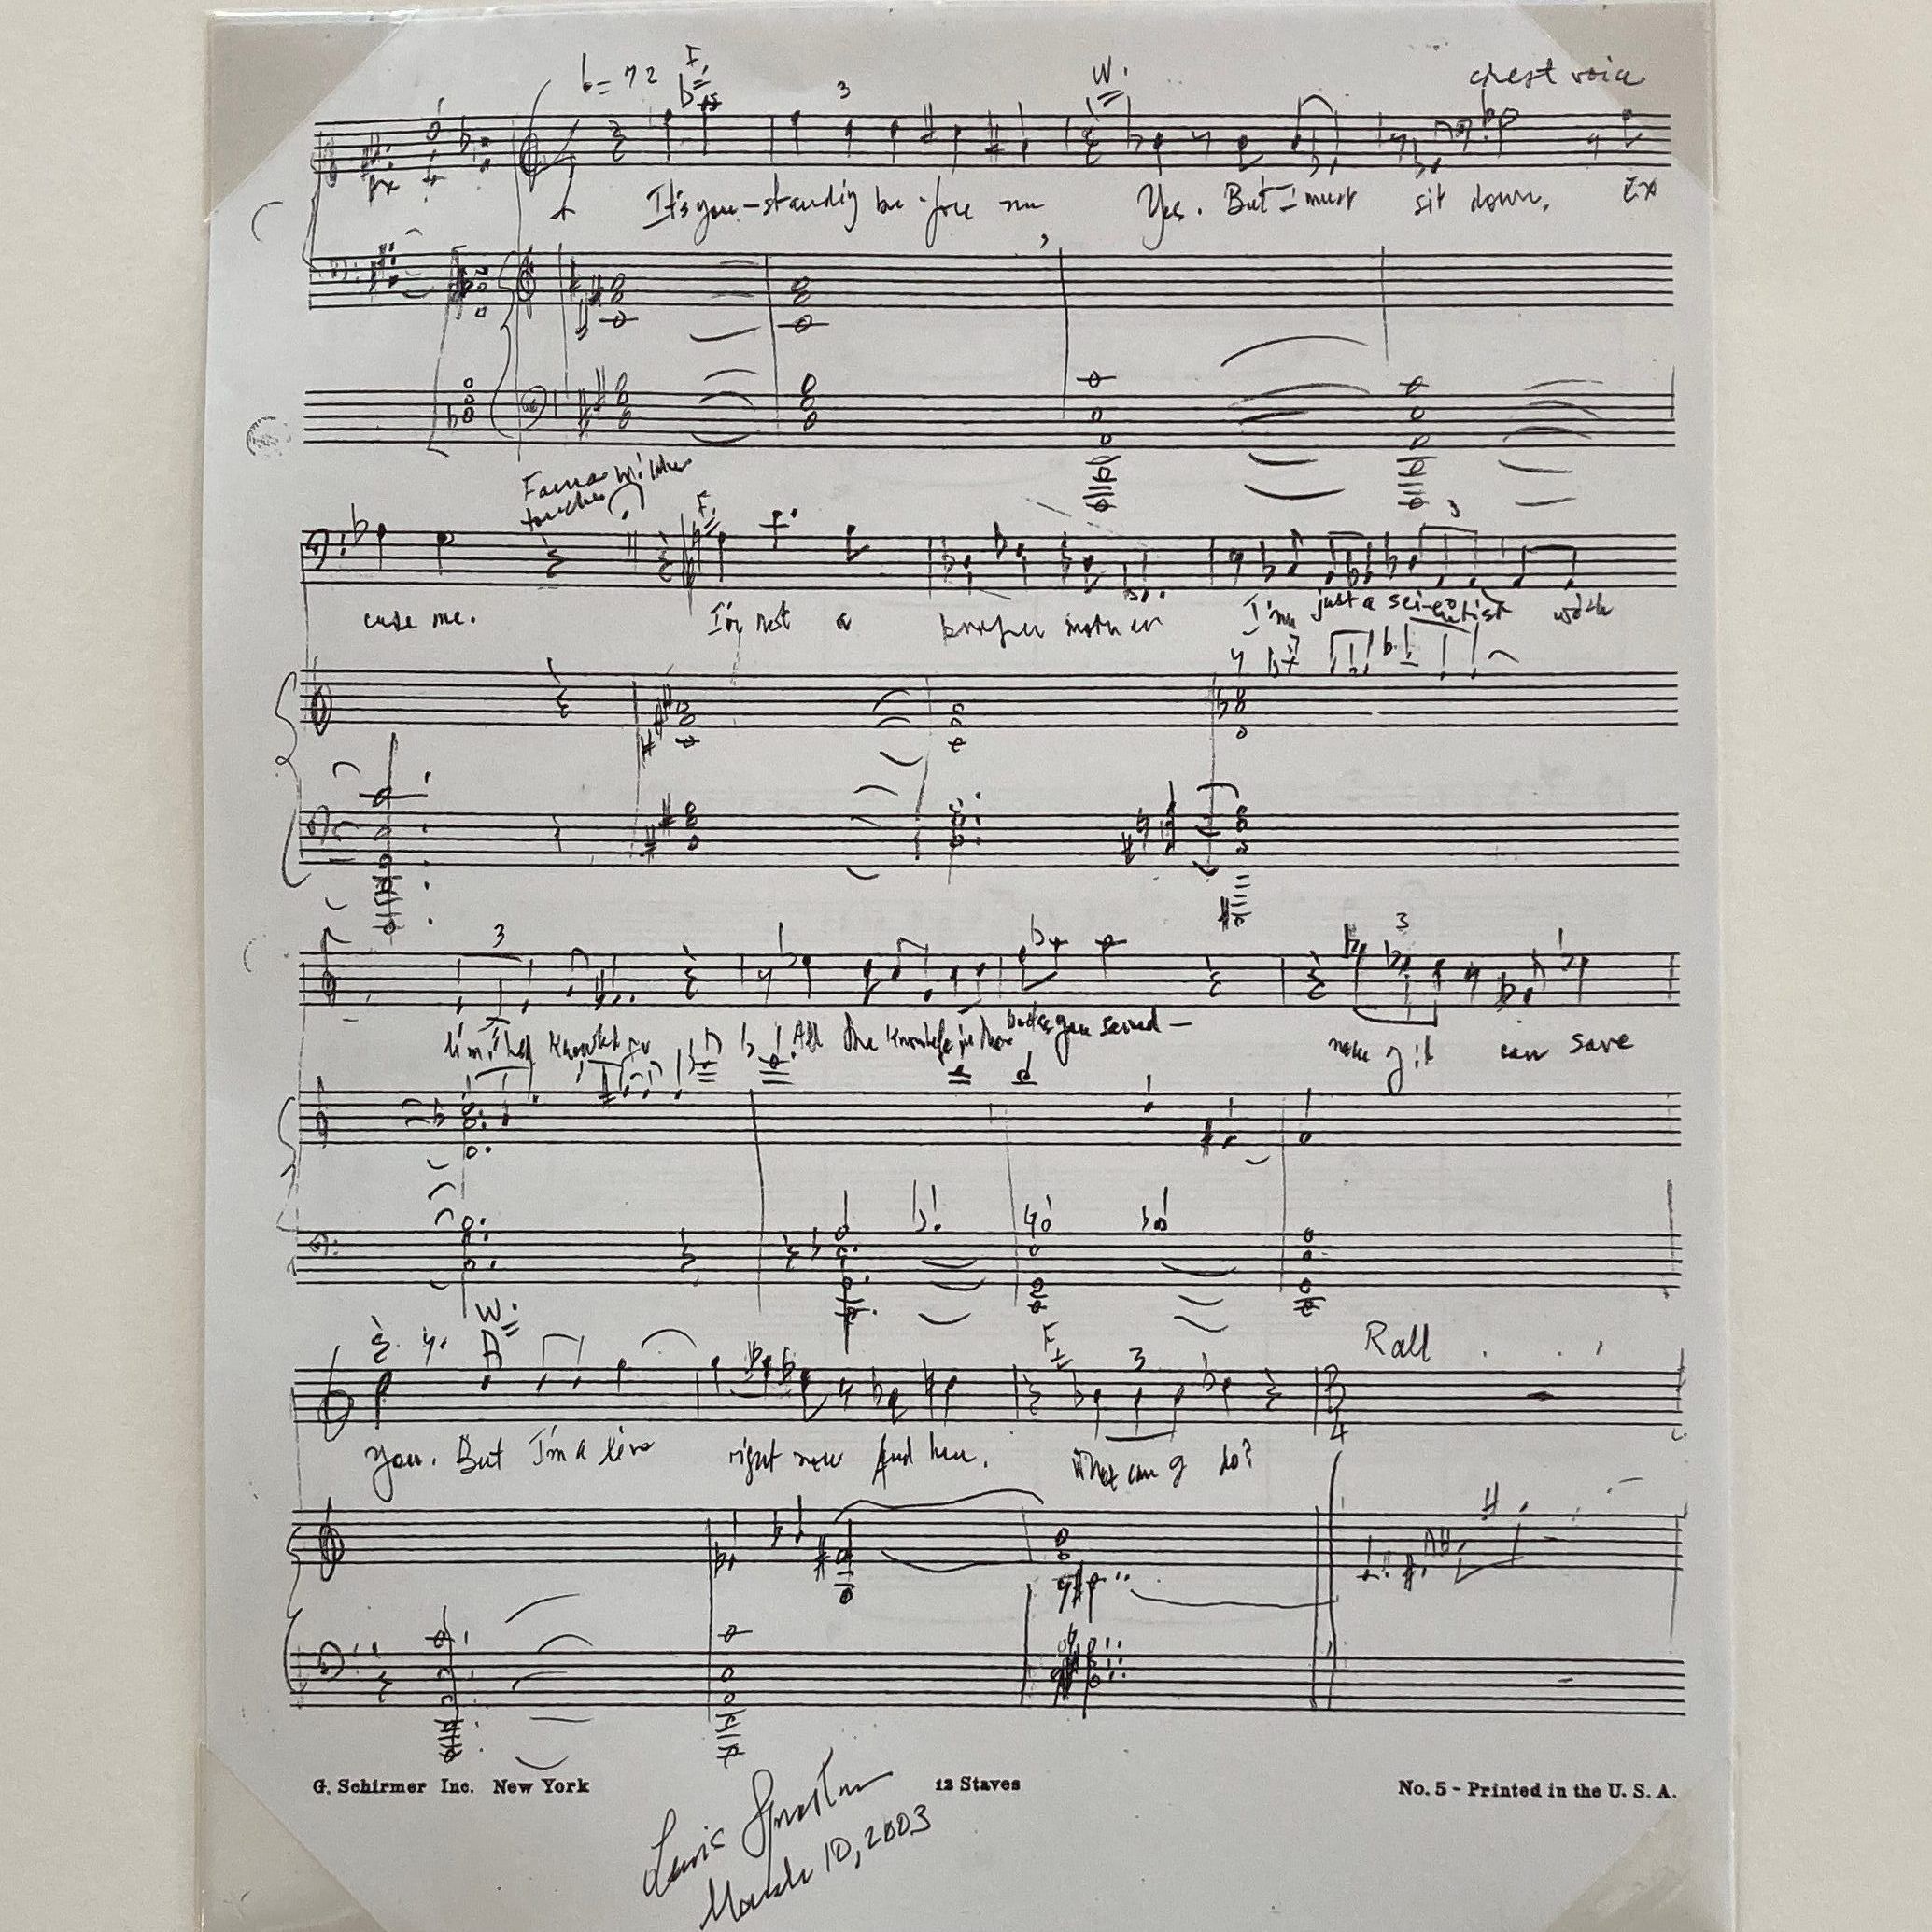 = 72 F. 3 W. chest voice
It's you - standing be - fore me Yes. But I must sit down. Ex
touches
F. 3
cuse me. I'm not a proper mother I'm just a scientist with
3 3
limited All the knowledge in these books you saved — none of it can save
W. F. 3 Rall . . .
You. But I'm a live right now And here. What can I do?
4
G. Schirmer Inc. New York 12 Staves No. 5 - Printed in the U. S. A.
Lewis Spratlan
March 10, 2003